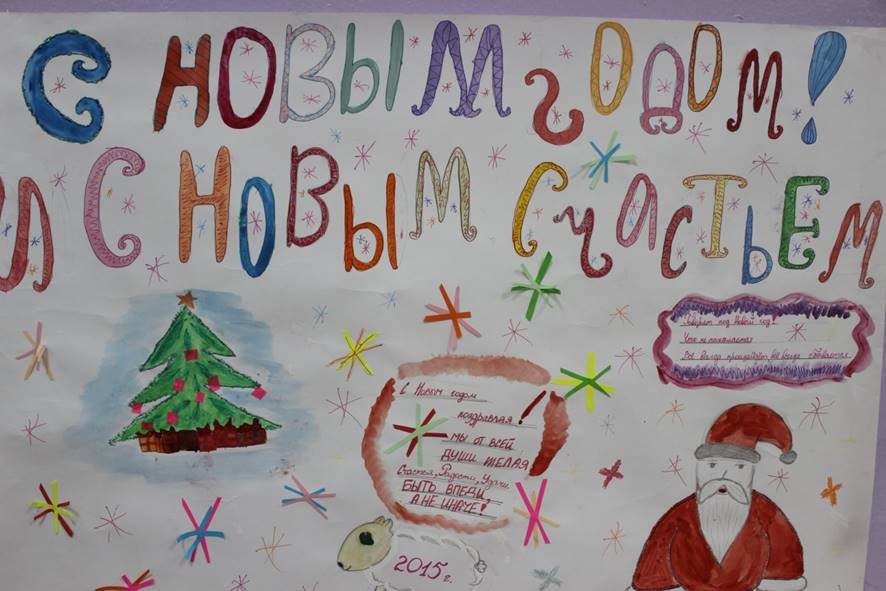 С НОВЫМ ГОДОМ!
И С НОВЫМ СЧАСТЬЕМ
Говорят под Новый год!
Что не пожелается
Всё всегда произойдёт, всё всегда сбывается.
С Новым годом
поздравляя!
мы от всей
души желая
Счастья, Радости, Удачи.
Быть впеди,
а не иначе!
2015г.